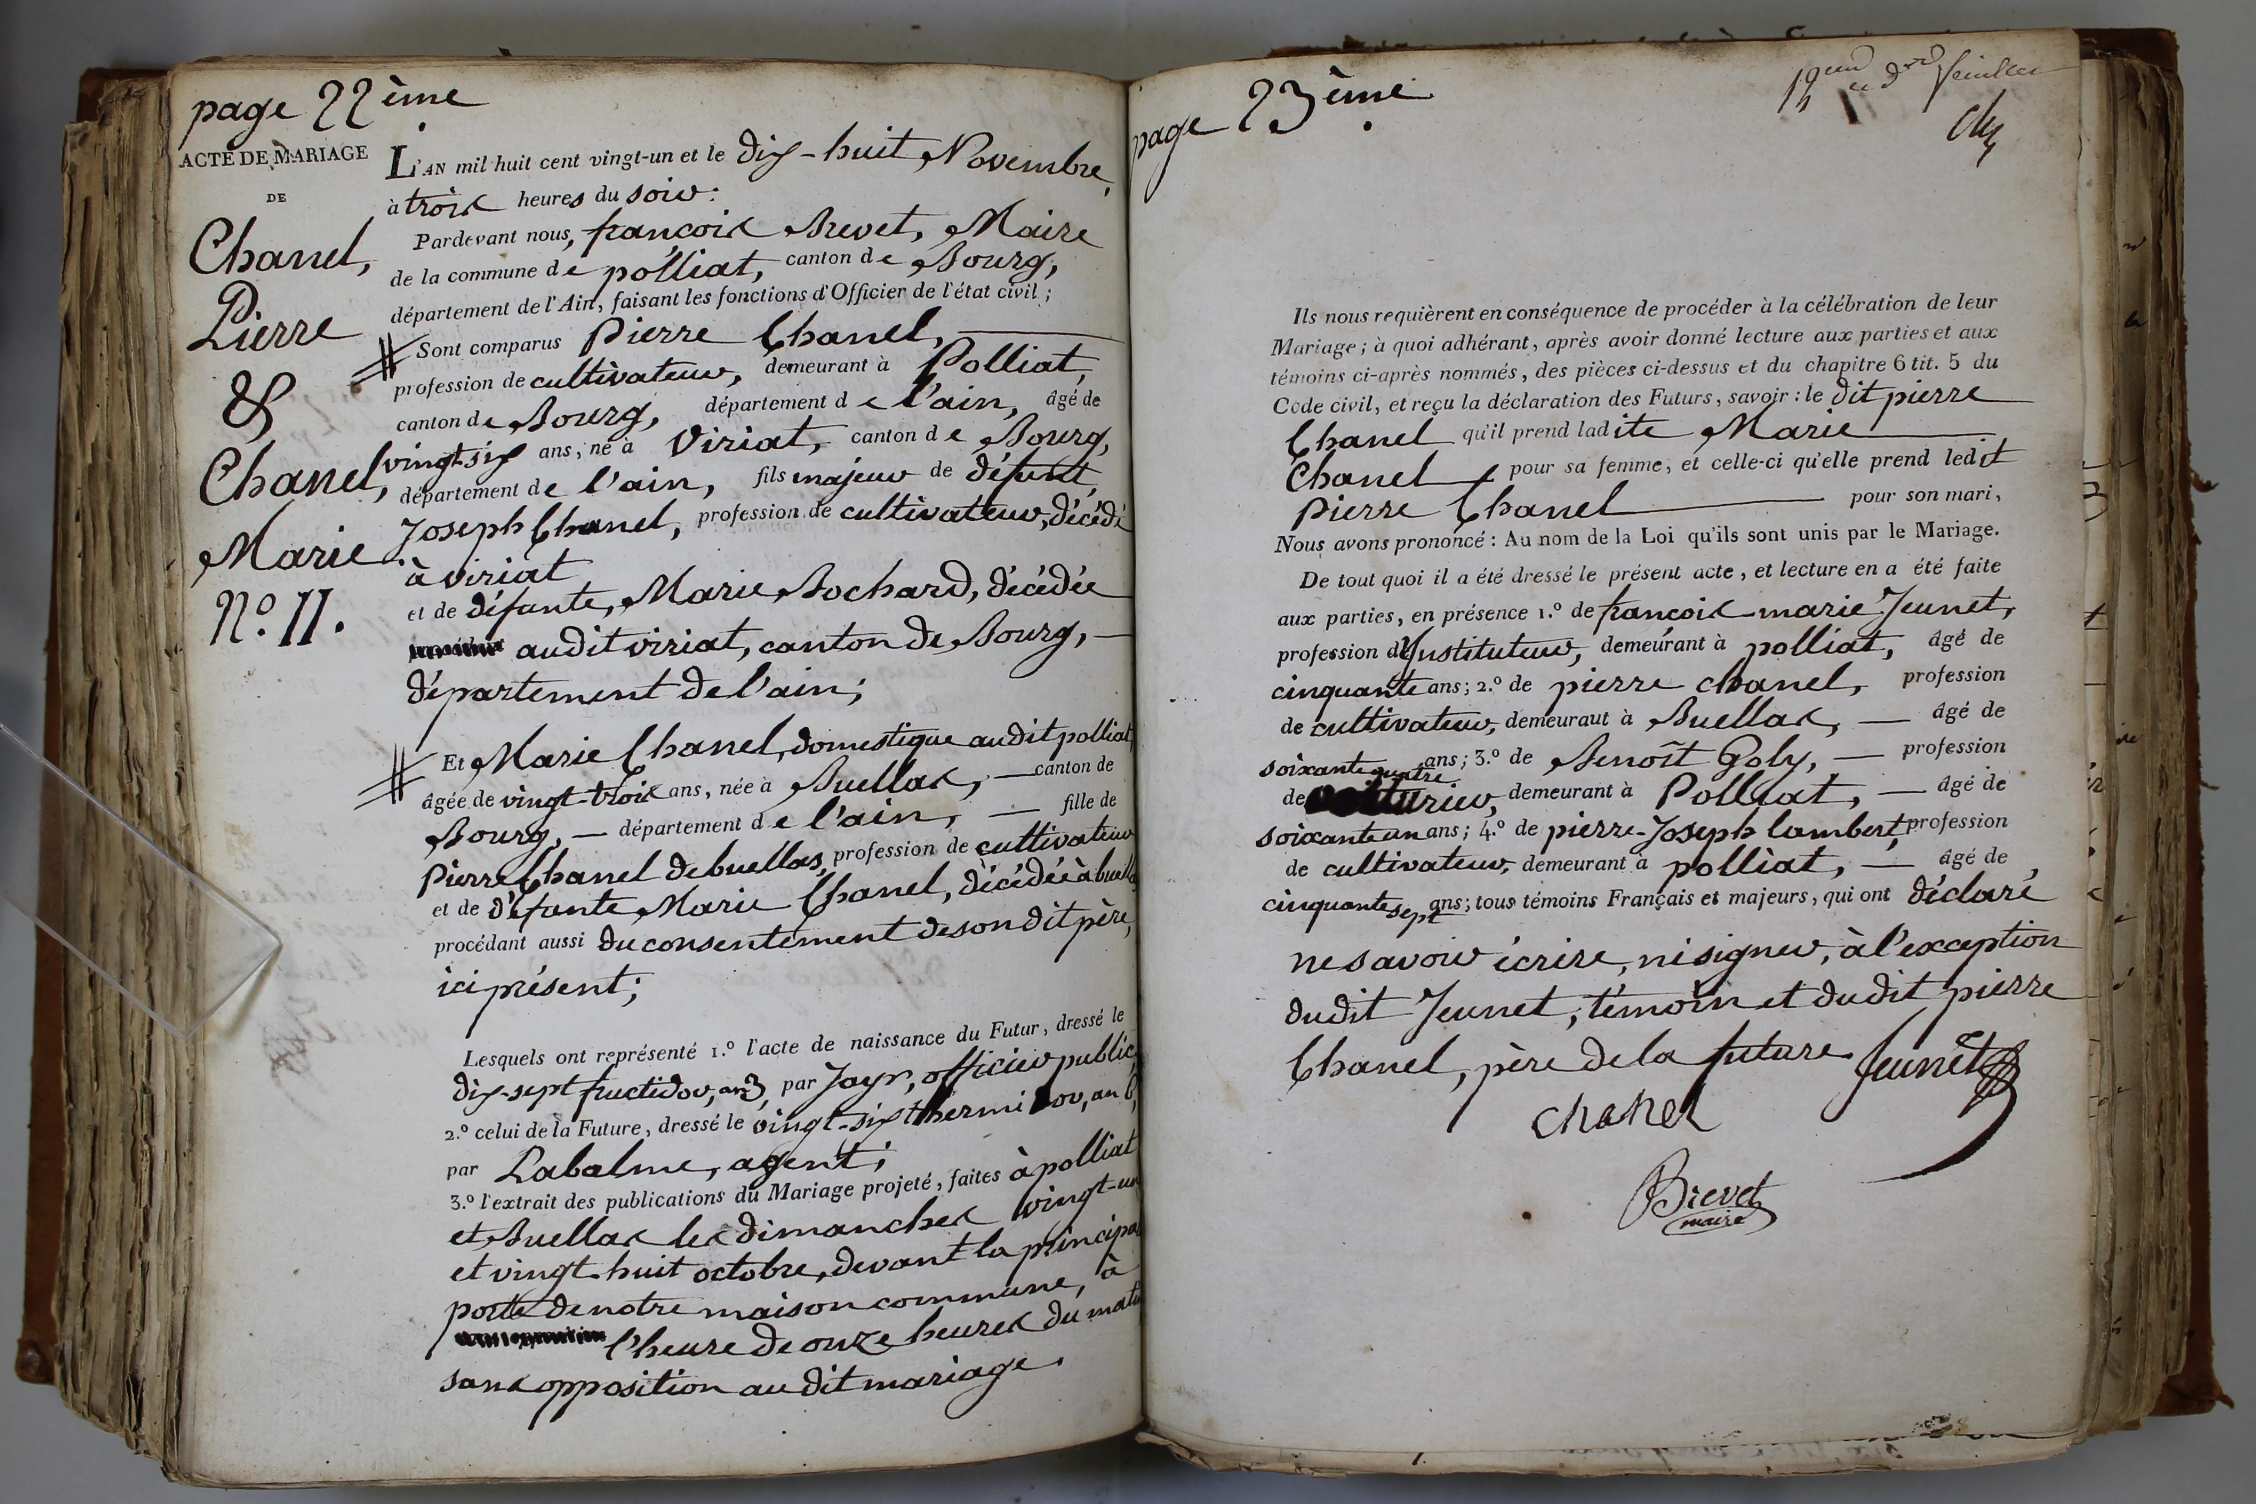 page 22ème
ACTE DE MARIAGE
DE
Chanel,
Pierre
&
Chanel,
Marie
N.º 11.
L'AN mil huit cent vingt-un et le dix-huit Novembre,
à trois heures du soir.
Pardevant nous, françois Brevet, Maire
de la commune de polliat, canton de Bourg,
département de l'Ain, faisant les fonctions d'Officier de l'état civil;
Sont comparus Pierre Chanel,
profession de cultivateur, demeurant à Polliat,
canton de Bourg, département de l'ain, âgé de
vingt-six ans, né à Viriat, canton de Bourg,
département de l'ain, fils majeur de défunt
Joseph Chanel, profession de cultivateur, décédé
à viriat
et de défunte, Marie Bochard, décédée
audit viriat, canton de Bourg,
département de l'ain;
Et Marie Chanel, domestique audit polliat,
âgée de vingt-trois ans, née à Buellas, canton de
Bourg, département de l'ain, fille de
Pierre Chanel de buellas, profession de cultivateur
et de défunte Marie Chanel, décédée à buellas
procédant aussi du consentement de son dit père,
ici présent;
Lesquels ont représenté 1.º l'acte de naissance du Futur, dressé le
dix-sept fructidor, an 3, par Jayr, officier public,
2.º celui de la Future, dressé le vingt-six thérmidor, an 6,
par Labalme, agent;
3.º l'extrait des publications du Mariage projeté, faites à polliat
et Buellas les dimanches vingt-un
et vingt-huit octobre, devant la principale
porte de notre maison commune, à
l'heure de onze heures du matin
sans opposition audit mariage.
page 23ème
feuillet
Ils nous requièrent en conséquence de procéder à la célébration de leur
Mariage; à quoi adhérant, après avoir donné lecture aux parties et aux
témoins ci-après nommés, des pièces ci-dessus et du chapitre 6 tit. 5 du
Code civil, et reçu la déclaration des Futurs, savoir: le dit pierre
Chanel qu'il prend ladite Marie
Chanel pour sa femme, et celle-ci qu'elle prend ledit
Pierre Chanel pour son mari,
Nous avons prononcé: Au nom de la Loi qu'ils sont unis par le Mariage.
De tout quoi il a été dressé le présent acte, et lecture en a été faite
aux parties, en présence 1.º de françois-marie Jeunet,
profession d'Instituteur, demeurant à polliat, âgé de
cinquante ans; 2.º de pierre chanel, profession
de cultivateur, demeurant à Buellas, âgé de
soixante quatre ans; 3.º de Benoît Goly, profession
de demeurant à Polliat, âgé de
soixante un ans; 4.º de pierre-Joseph lambert, profession
de cultivateur, demeurant à polliat, âgé de
cinquante sept ans; tous témoins Français et majeurs, qui ont déclaré
ne savoir écrire, ni signer, à l'exception
dudit Jeunet, témoin et dudit pierre
Chanel, père de la future
Jeunet
chanel
Brevet
maire